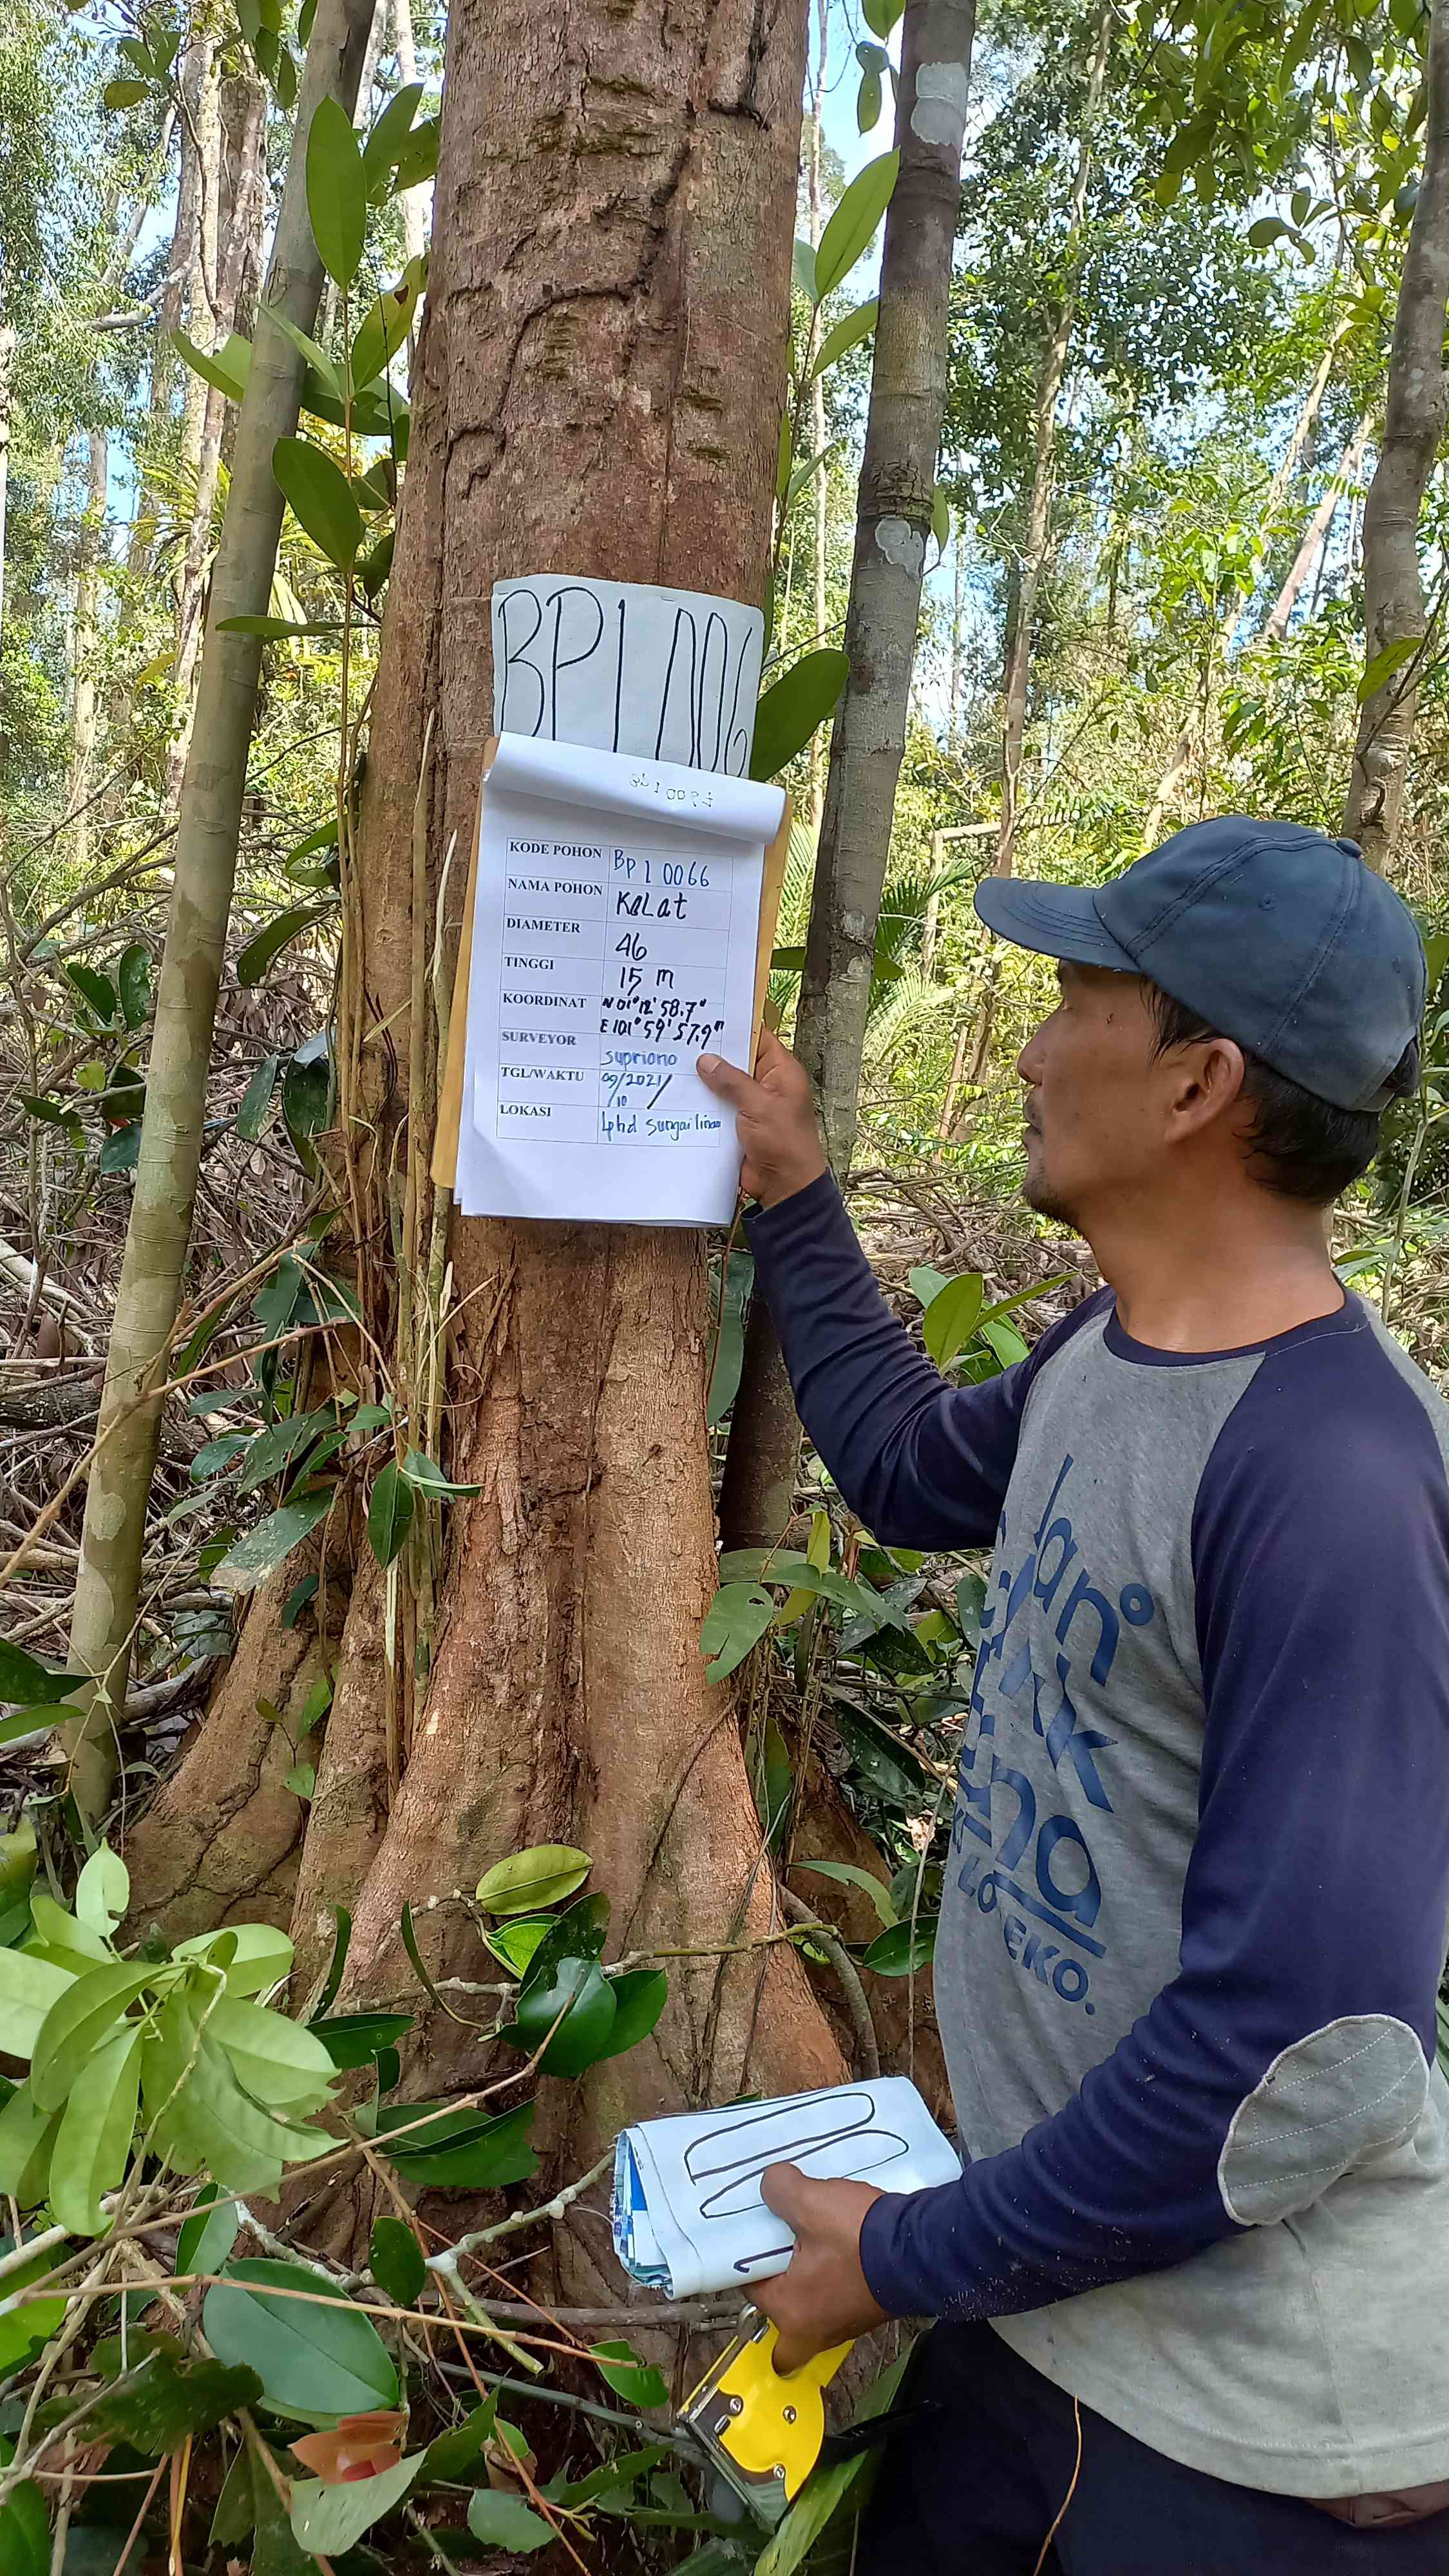 BP1 006
KODE POHON Bp 1 0066
NAMA POHON KeLat
DIAMETER 46
TINGGI 15 m
KOORDINAT N 01° 12' 58.7"
E 101° 59' 57.9"
SURVEYOR Supriono
TGL/WAKTU 09/2021/
/10
LOKASI Lphd Sungai linau
LO EKO.